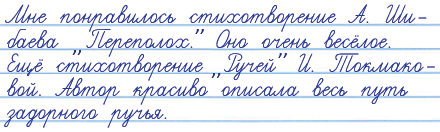 Мне понравилось стихотворение А. Ши-
баева „Переполох.” Оно очень весёлое.
Ещё стихотворение „Ручей” И. Токмако-
вой. Автор красиво описала весь путь
задорного ручья.